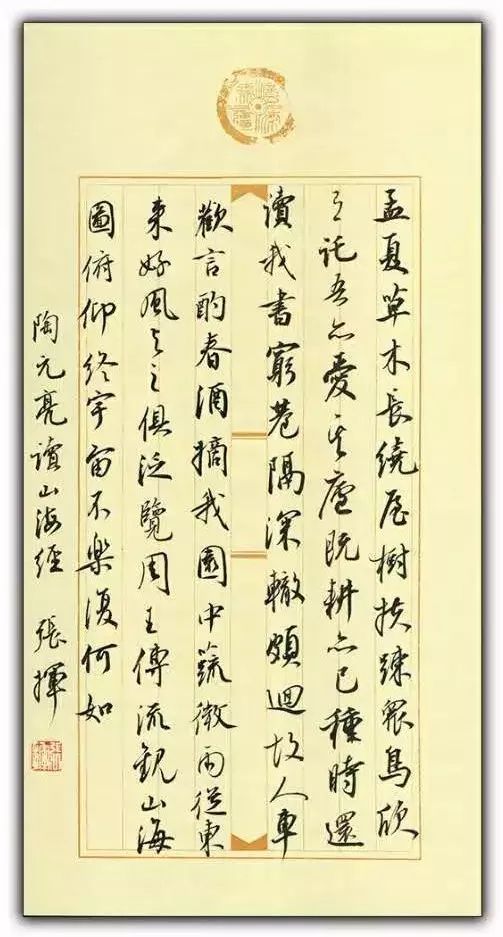 孟夏草木長繞屋樹扶疎眾鳥欣
有託吾亦愛吾廬既耕亦已種時還
讀我書窮巷隔深轍頗迴故人車
歡言酌春酒摘我園中蔬微雨從東
來好風與之俱泛覽周王傳流觀山海
圖俯仰終宇宙不樂復何如
陶元亮讀山海經 張揮